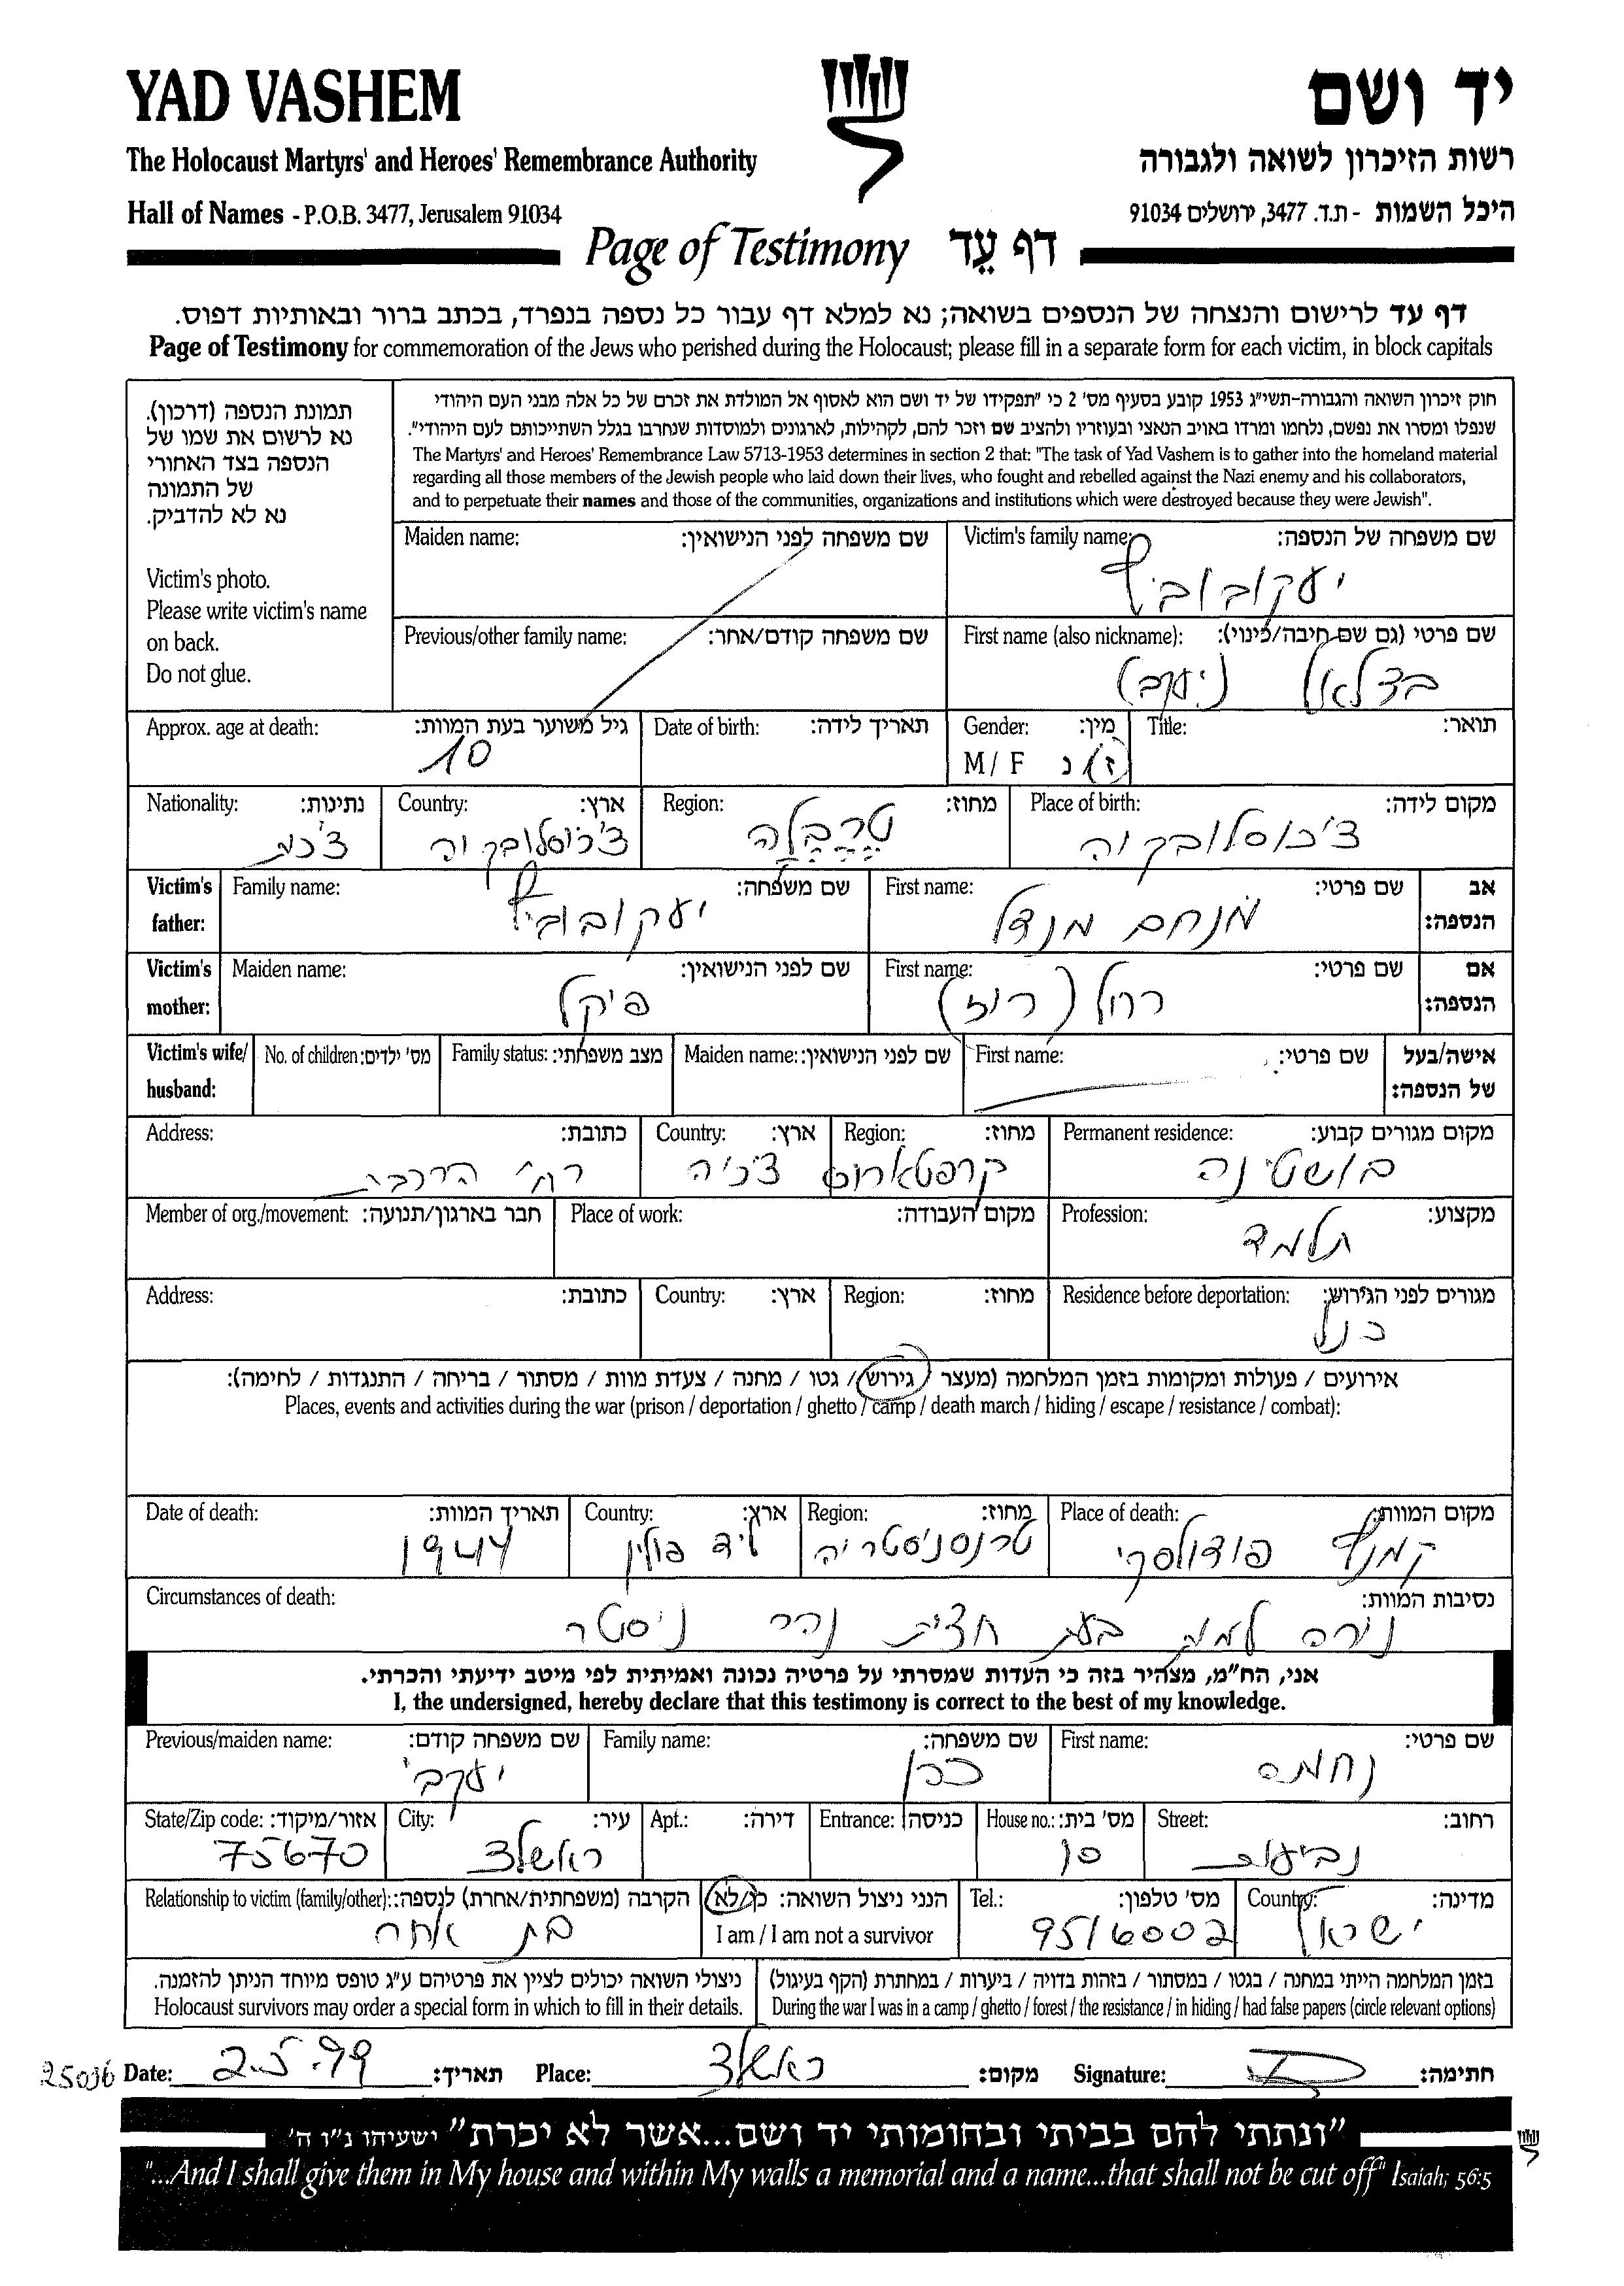 YAD VASHEM
יד ושם
The Holocaust Martyrs' and Heroes' Remembrance Authority
רשות הזיכרון לשואה ולגבורה
Hall of Names - P.O.B. 3477, Jerusalem 91034
היכל השמות - ת.ד. 3477, ירושלים 91034
Page of Testimony דף עֵד
דף עד לרישום והנצחה של הנספים בשואה; נא למלא דף עבור כל נספה בנפרד, בכתב ברור ובאותיות דפוס.
Page of Testimony for commemoration of the Jews who perished during the Holocaust; please fill in a separate form for each victim, in block capitals
תמונת הנספה (דרכון).
נא לרשום את שמו של
הנספה בצד האחורי
של התמונה
נא לא להדביק.
Victim's photo.
Please write victim's name
on back.
Do not glue.
חוק זיכרון השואה והגבורה-תשי"ג 1953 קובע בסעיף מס' 2 כי "תפקידו של יד ושם הוא לאסוף אל המולדת את זכרם של כל אלה מבני העם היהודי
שנפלו ומסרו את נפשם, נלחמו ומרדו באויב הנאצי ובעוזריו ולהציב שם וזכר להם, לקהילות, לארגונים ולמוסדות שנחרבו בגלל השתייכותם לעם היהודי".
The Martyrs' and Heroes' Remembrance Law 5713-1953 determines in section 2 that: "The task of Yad Vashem is to gather into the homeland material
regarding all those members of the Jewish people who laid down their lives, who fought and rebelled against the Nazi enemy and his collaborators,
and to perpetuate their names and those of the communities, organizations and institutions which were destroyed because they were Jewish".
Victim's family name: שם משפחה של הנספה:
יעקובוביץ
Maiden name: שם משפחה לפני הנישואין:
First name (also nickname): שם פרטי (גם שם חיבה/כינוי):
בצלאל (יעקב)
Previous/other family name: שם משפחה קודם/אחר:
Title: תואר:
Gender: מין:
M / F ז / נ
Date of birth: תאריך לידה:
Approx. age at death: גיל משוער בעת המוות:
10
Place of birth: מקום לידה:
צ'כוסלובקיה
Region: מחוז:
טרבלה
Country: ארץ:
צ'כוסלובקיה
Nationality: נתינות:
צ'כית
Victim's father: אב הנספה:
First name: שם פרטי:
מנחם מנדל
Family name: שם משפחה:
יעקובוביץ
Victim's mother: אם הנספה:
First name: שם פרטי:
רחל (רוז)
Maiden name: שם לפני הנישואין:
פיקל
Victim's wife/ husband: אישה/בעל של הנספה:
First name: שם פרטי:
Maiden name: שם לפני הנישואין:
Family status: מצב משפחתי:
No. of children: מס' ילדים:
Permanent residence: מקום מגורים קבוע:
בושטינה
Region: מחוז:
Country: ארץ:
צ'כיה
Address: כתובת:
רח' הרכבת
Profession: מקצוע:
תלמד
Place of work: מקום העבודה:
Member of org./movement: חבר בארגון/תנועה:
Residence before deportation: מגורים לפני הגירוש:
כנ"ל
Region: מחוז:
Country: ארץ:
Address: כתובת:
אירועים / פעולות ומקומות בזמן המלחמה (מעצר / גירוש / גטו / מחנה / צעדת מוות / מסתור / בריחה / התנגדות / לחימה):
Places, events and activities during the war (prison / deportation / ghetto / camp / death march / hiding / escape / resistance / combat):
Place of death: מקום המוות:
קמנץ פודולסקי
Region: מחוז:
טרנסניסטריה
Country: ארץ:
ליד פולין
Date of death: תאריך המוות:
1944
Circumstances of death: נסיבות המוות:
נורה למות בעת חצית נהר ניסטר
אני, הח"מ, מצהיר בזה כי העדות שמסרתי על פרטיה נכונה ואמיתית לפי מיטב ידיעתי והכרתי.
I, the undersigned, hereby declare that this testimony is correct to the best of my knowledge.
First name: שם פרטי:
נחמה
Family name: שם משפחה:
כהן
Previous/maiden name: שם משפחה קודם:
יעקבי
Street: רחוב:
House no.: מס' בית:
10
Entrance: כניסה:
Apt.: דירה:
City: עיר:
ראשל"צ
State/Zip code: אזור/מיקוד:
75670
Country: מדינה:
ישראל
Tel.: מס' טלפון:
9516002
הנני ניצול השואה: כן/לא
I am / I am not a survivor
Relationship to victim (family/other): הקרבה (משפחתית/אחרת) לנספה:
בת אחה
בזמן המלחמה הייתי במחנה / בגטו / במסתור / בזהות בדויה / ביערות / במחתרת (הקף בעיגול)
During the war I was in a camp / ghetto / forest / the resistance / in hiding / had false papers (circle relevant options)
ניצולי השואה יכולים לציין את פרטיהם ע"ג טופס מיוחד הניתן להזמנה.
Holocaust survivors may order a special form in which to fill in their details.
25036 Date: 2.5.99 תאריך: Place: ראשל"צ מקום: Signature: חתימה:
"ונתתי להם בביתי ובחומותי יד ושם...אשר לא יכרת" ישעיהו נ"ו ה'
"...And I shall give them in My house and within My walls a memorial and a name...that shall not be cut off" Isaiah; 56:5